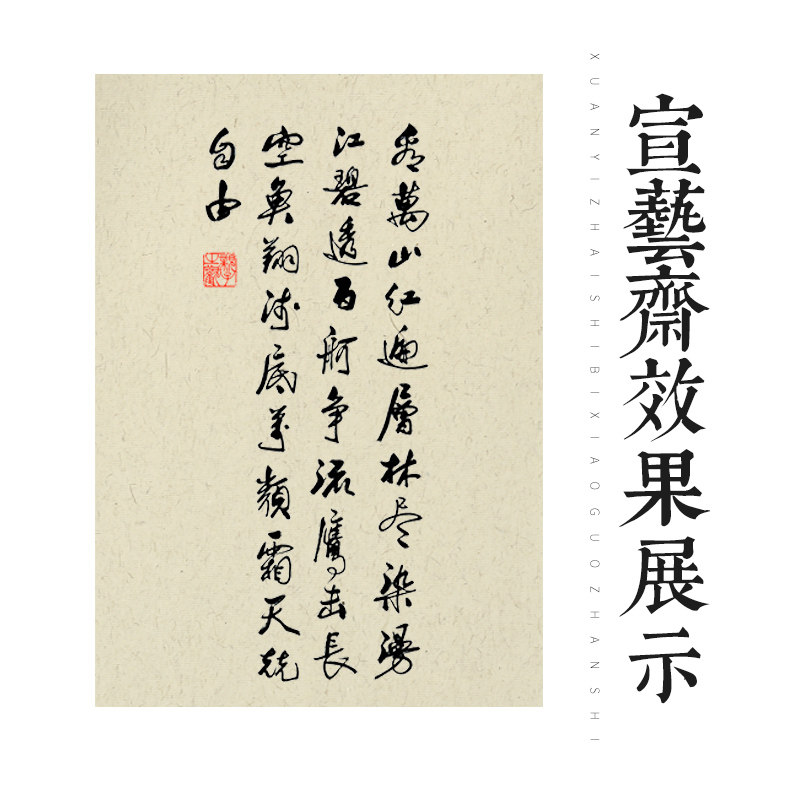 宣藝齋效果展示
XUANYIZHAISHIBIXIAOGUOZHANSHI
看萬山红遍層林尽染漫
江碧透百舸争流鷹击長
空魚翔浅底萬類霜天竞
自由